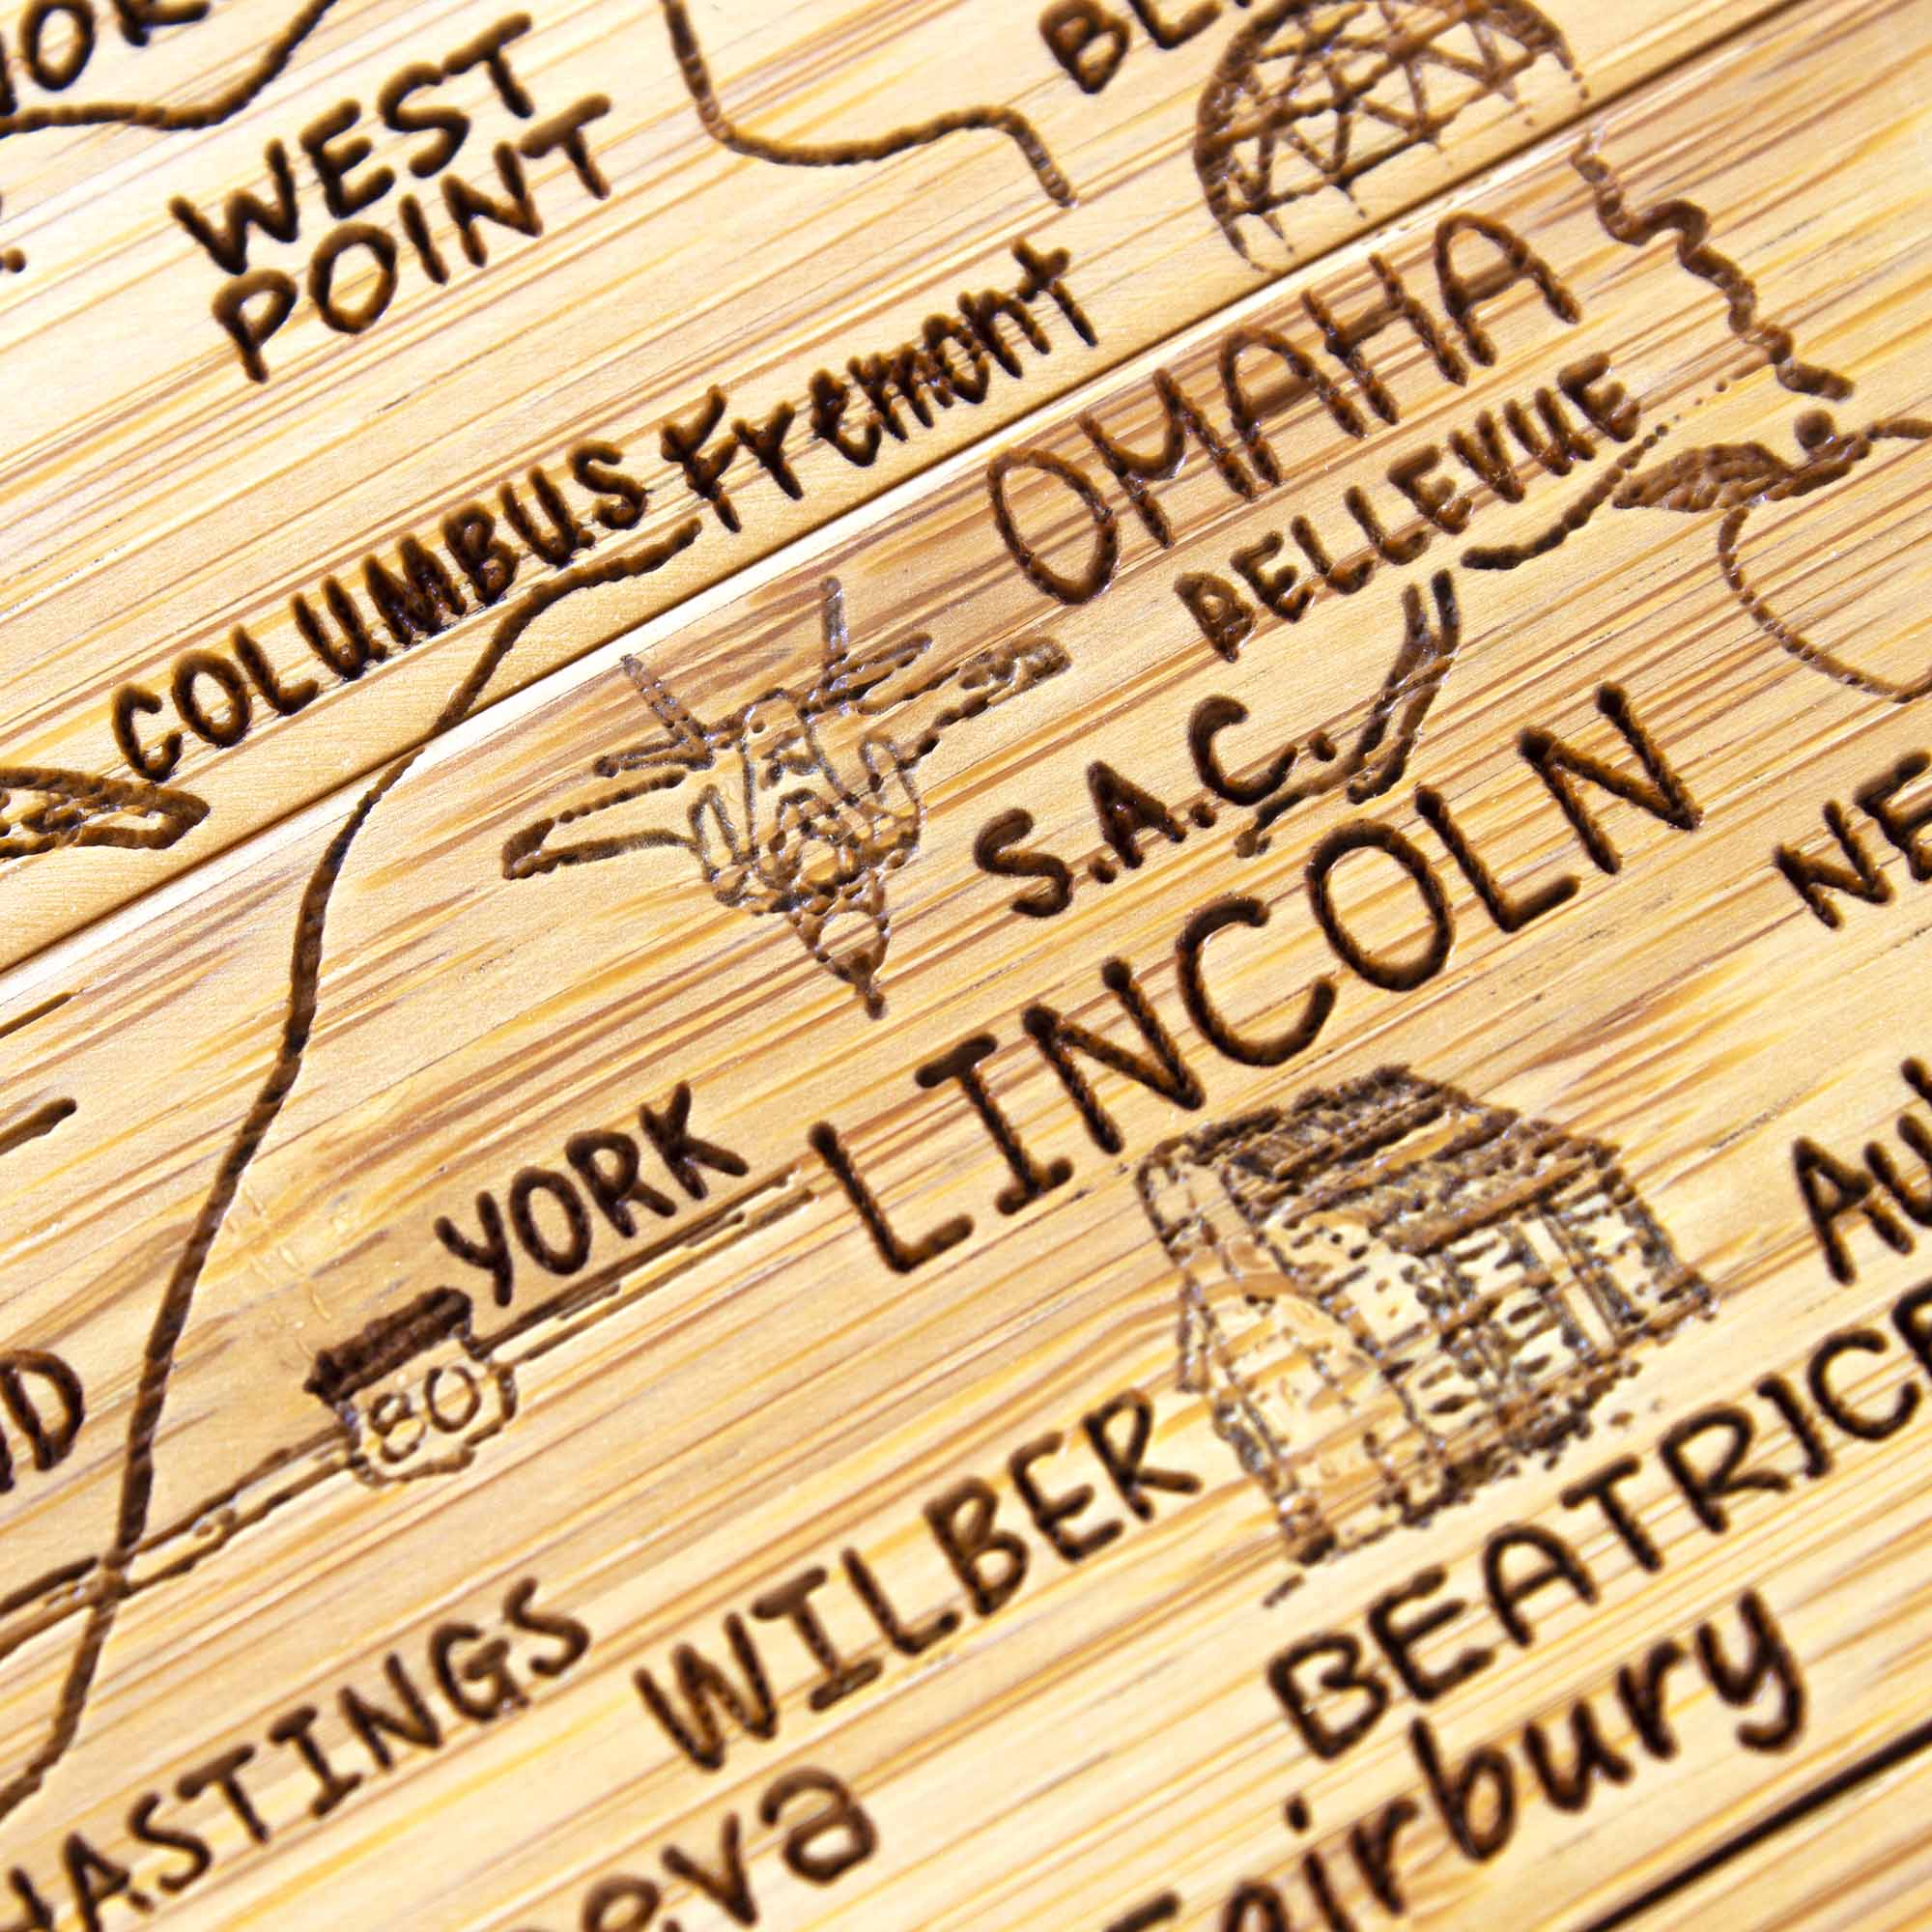 WEST
POINT
COLUMBUS
Fremont
OMAHA
BELLEVUE
S.A.C.
LINCOLN
YORK
80
WILBER
BEATRICE
HASTINGS
Fairbury